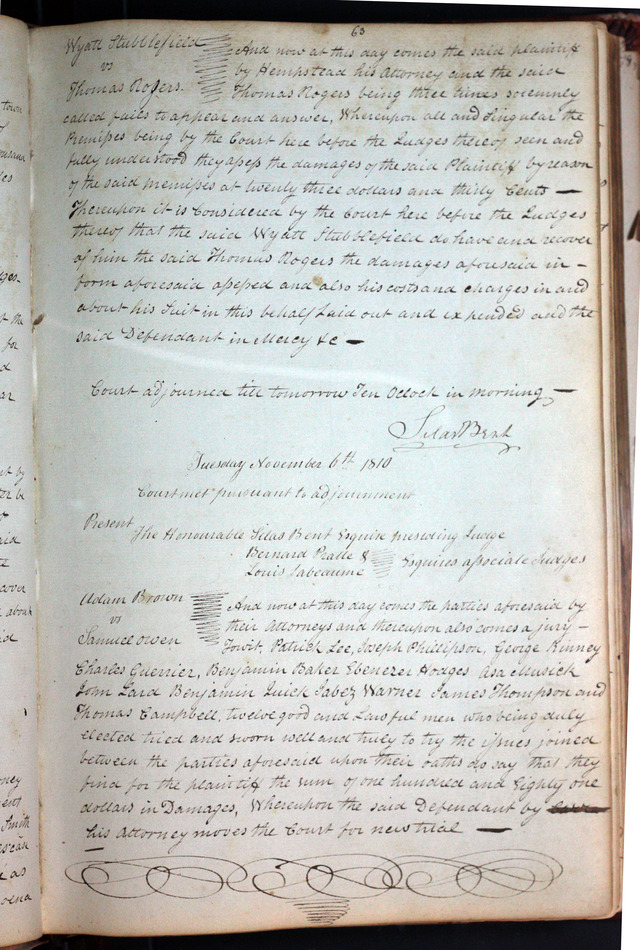 63
Wyatt Stubblefield
vs
Thomas Rogers.
And now at this day comes the said plaintiff
by Hempstead his Attorney and the said
Thomas Rogers being three times solemnly
called fails to appear and answer, Whereupon all and Singular the
Premises being by the Court here before the Judges thereof seen and
fully understood they assess the damages of the said Plaintiff by reason
of the said premises at twenty three dollars and thirty Cents —
Thereupon it is Considered by the Court here before the Judges
thereof that the said Wyatt Stubblefield do have and recover
of him the said Thomas Rogers the damages aforesaid in -
form aforesaid assessed and also his costs and charges in and
about his Suit in this behalf Laid out and expended and the
said Defendant in Mercy &c —
Court adjourned till tomorrow Ten OClock in morning —
Silas Bent
Tuesday November 6th 1810
Court met pursuant to adjournment
Present The Honourable Silas Bent Esquire presiding Judge
Bernard Pratte &
Louis Labeaume
Esquires associate Judges
Adam Brown
vs
Samuel Owen
And now at this day comes the parties aforesaid by
their Attorneys and thereupon also comes a jury -
Towit, Patrick Lee, Joseph Phillipson, George Kinney
Charles Guerrier, Benjamin Baker Ebenezer Hodges Asa Musick
John Lard Benjamin Quick Jabez Warner James Thompson and
Thomas Campbell, twelve good and Lawful men who being duly
elected tried and sworn well and truly to try the issues joined
between the parties aforesaid upon their oaths do say that they
find for the plaintiff the sum of one hundred and Eighty one
dollars in Damages, Whereupon the said Defendant by
his Attorney moves the Court for new trial —